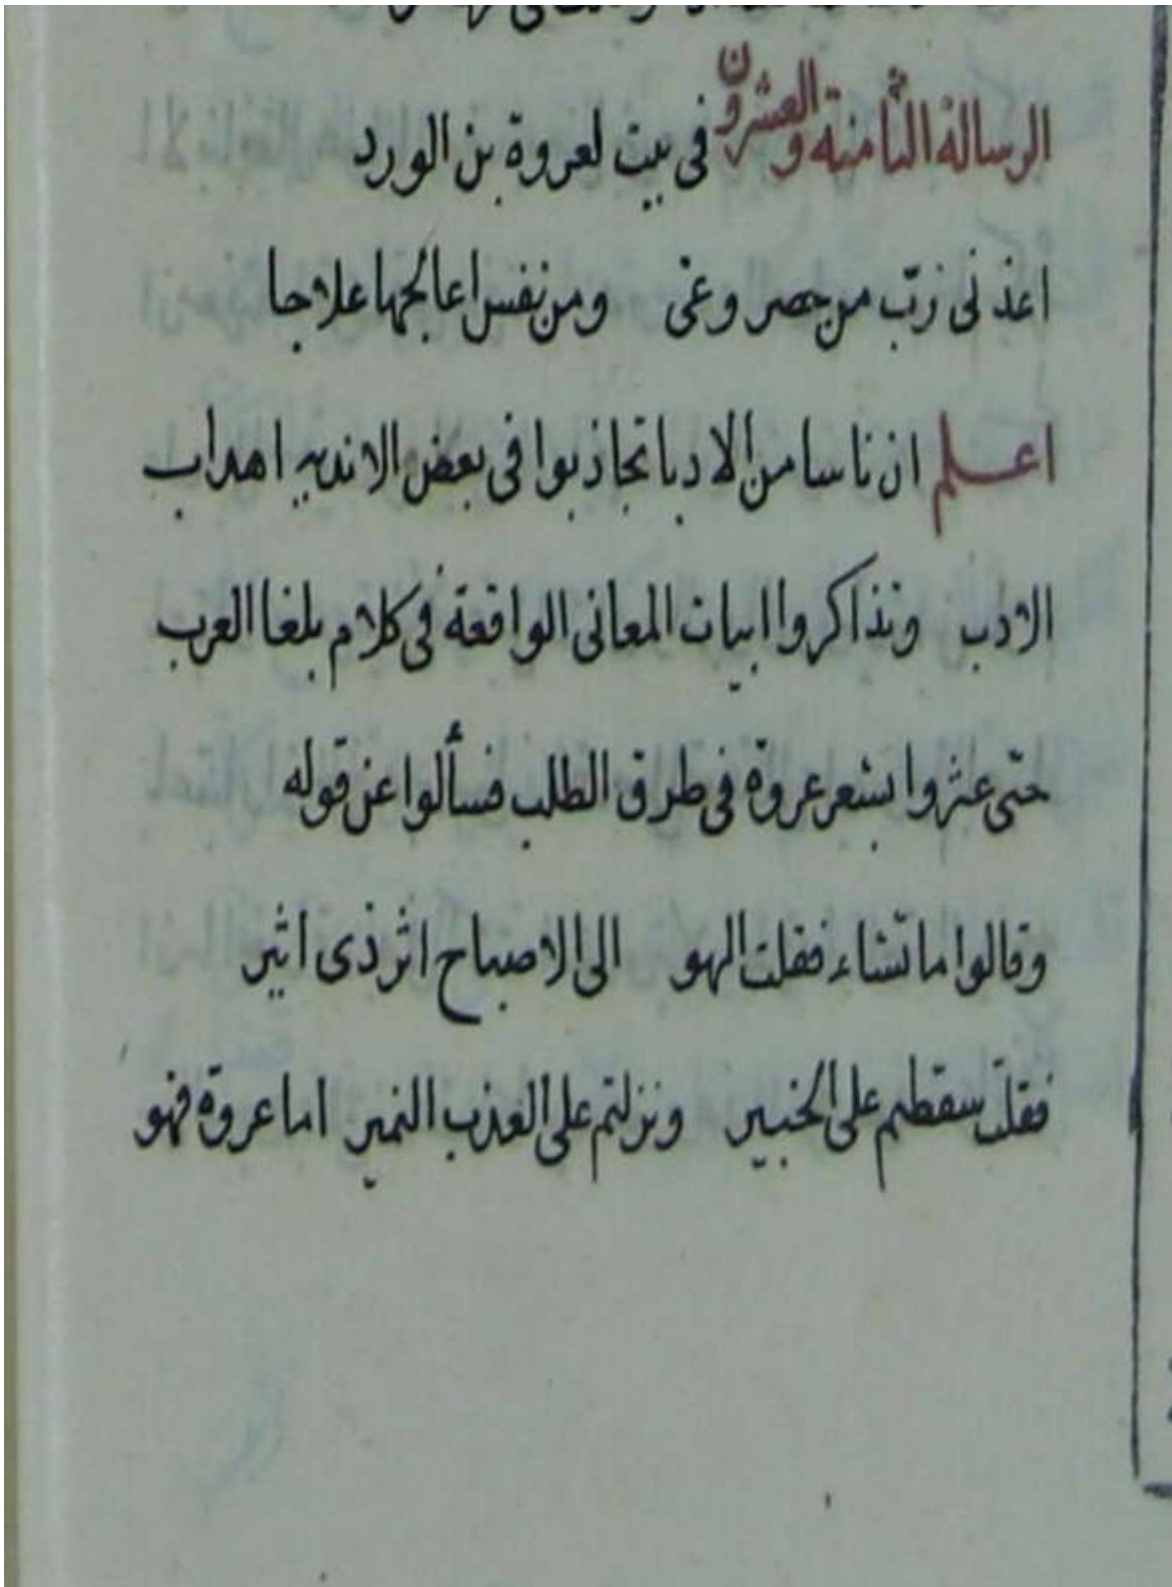 الرسالة الثامنة والعشرون فى بيت لعروة بن الورد
اعذنى ربّ من حصر وعى ومن نفس اعالجها علاجا
اعلم ان ناسا من الادبا تجاذبوا فى بعض الاندية اهداب
الادب وتذاكروا ابيات المعانى الواقعة فى كلام بلغا العرب
حتى عثروا بشعر عروة فى طرق الطلب فسألوا عن قوله
وقالوا ما تشاء فقلت الهو الى الاصباح اثر ذى اثير
فقلت سقطتم على الخبير ونزلتم على العذب النمير اما عروة فهو